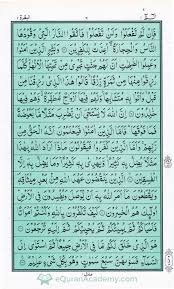 البقرة ٢
فَاِنْ لَّمْ تَفْعَلُوْا وَلَنْ تَفْعَلُوْا فَاتَّقُوا النَّارَ الَّتِيْ وَقُوْدُهَا
النَّاسُ وَالْحِجَارَةُ اُعِدَّتْ لِلْكٰفِرِيْنَ وَبَشِّرِ الَّذِيْنَ اٰمَنُوْا
وَعَمِلُوا الصّٰلِحٰتِ اَنَّ لَهُمْ جَنّٰتٍ تَجْرِيْ مِنْ تَحْتِهَا الْاَنْهٰرُ كُلَّمَا
رُزِقُوْا مِنْهَا مِنْ ثَمَرَةٍ رِّزْقًا قَالُوْا هٰذَا الَّذِيْ رُزِقْنَا مِنْ
قَبْلُ وَاُتُوْا بِهٖ مُتَشَابِهًا وَلَهُمْ فِيْهَا اَزْوَاجٌ مُّطَهَّرَةٌ وَّهُمْ فِيْهَا
خٰلِدُوْنَ اِنَّ اللّٰهَ لَا يَسْتَحْيٖ اَنْ يَّضْرِبَ مَثَلًا مَّا بَعُوْضَةً فَمَا
فَوْقَهَا فَاَمَّا الَّذِيْنَ اٰمَنُوْا فَيَعْلَمُوْنَ اَنَّهُ الْحَقُّ مِنْ
رَّبِّهِمْ وَاَمَّا الَّذِيْنَ كَفَرُوْا فَيَقُوْلُوْنَ مَاذَا اَرَادَ اللّٰهُ بِهٰذَا
مَثَلًا يُضِلُّ بِهٖ كَثِيْرًا وَّيَهْدِيْ بِهٖ كَثِيْرًا وَمَا يُضِلُّ بِهٖ اِلَّا
الْفٰسِقِيْنَ الَّذِيْنَ يَنْقُضُوْنَ عَهْدَ اللّٰهِ مِنْ بَعْدِ مِيْثَاقِهٖ
وَيَقْطَعُوْنَ مَا اَمَرَ اللّٰهُ بِهٖ اَنْ يُّوْصَلَ وَيُفْسِدُوْنَ فِي الْاَرْضِ
اُولٰئِكَ هُمُ الْخٰسِرُوْنَ كَيْفَ تَكْفُرُوْنَ بِاللّٰهِ وَكُنْتُمْ اَمْوَاتًا
فَاَحْيَاكُمْ ثُمَّ يُمِيْتُكُمْ ثُمَّ يُحْيِيْكُمْ ثُمَّ اِلَيْهِ تُرْجَعُوْنَ
هُوَ الَّذِيْ خَلَقَ لَكُمْ مَّا فِي الْاَرْضِ جَمِيْعًا ثُمَّ اسْتَوٰى اِلَى
السَّمَاءِ فَسَوّٰىهُنَّ سَبْعَ سَمٰوٰتٍ وَهُوَ بِكُلِّ شَيْءٍ عَلِيْمٌ
eQuranAcademy.com